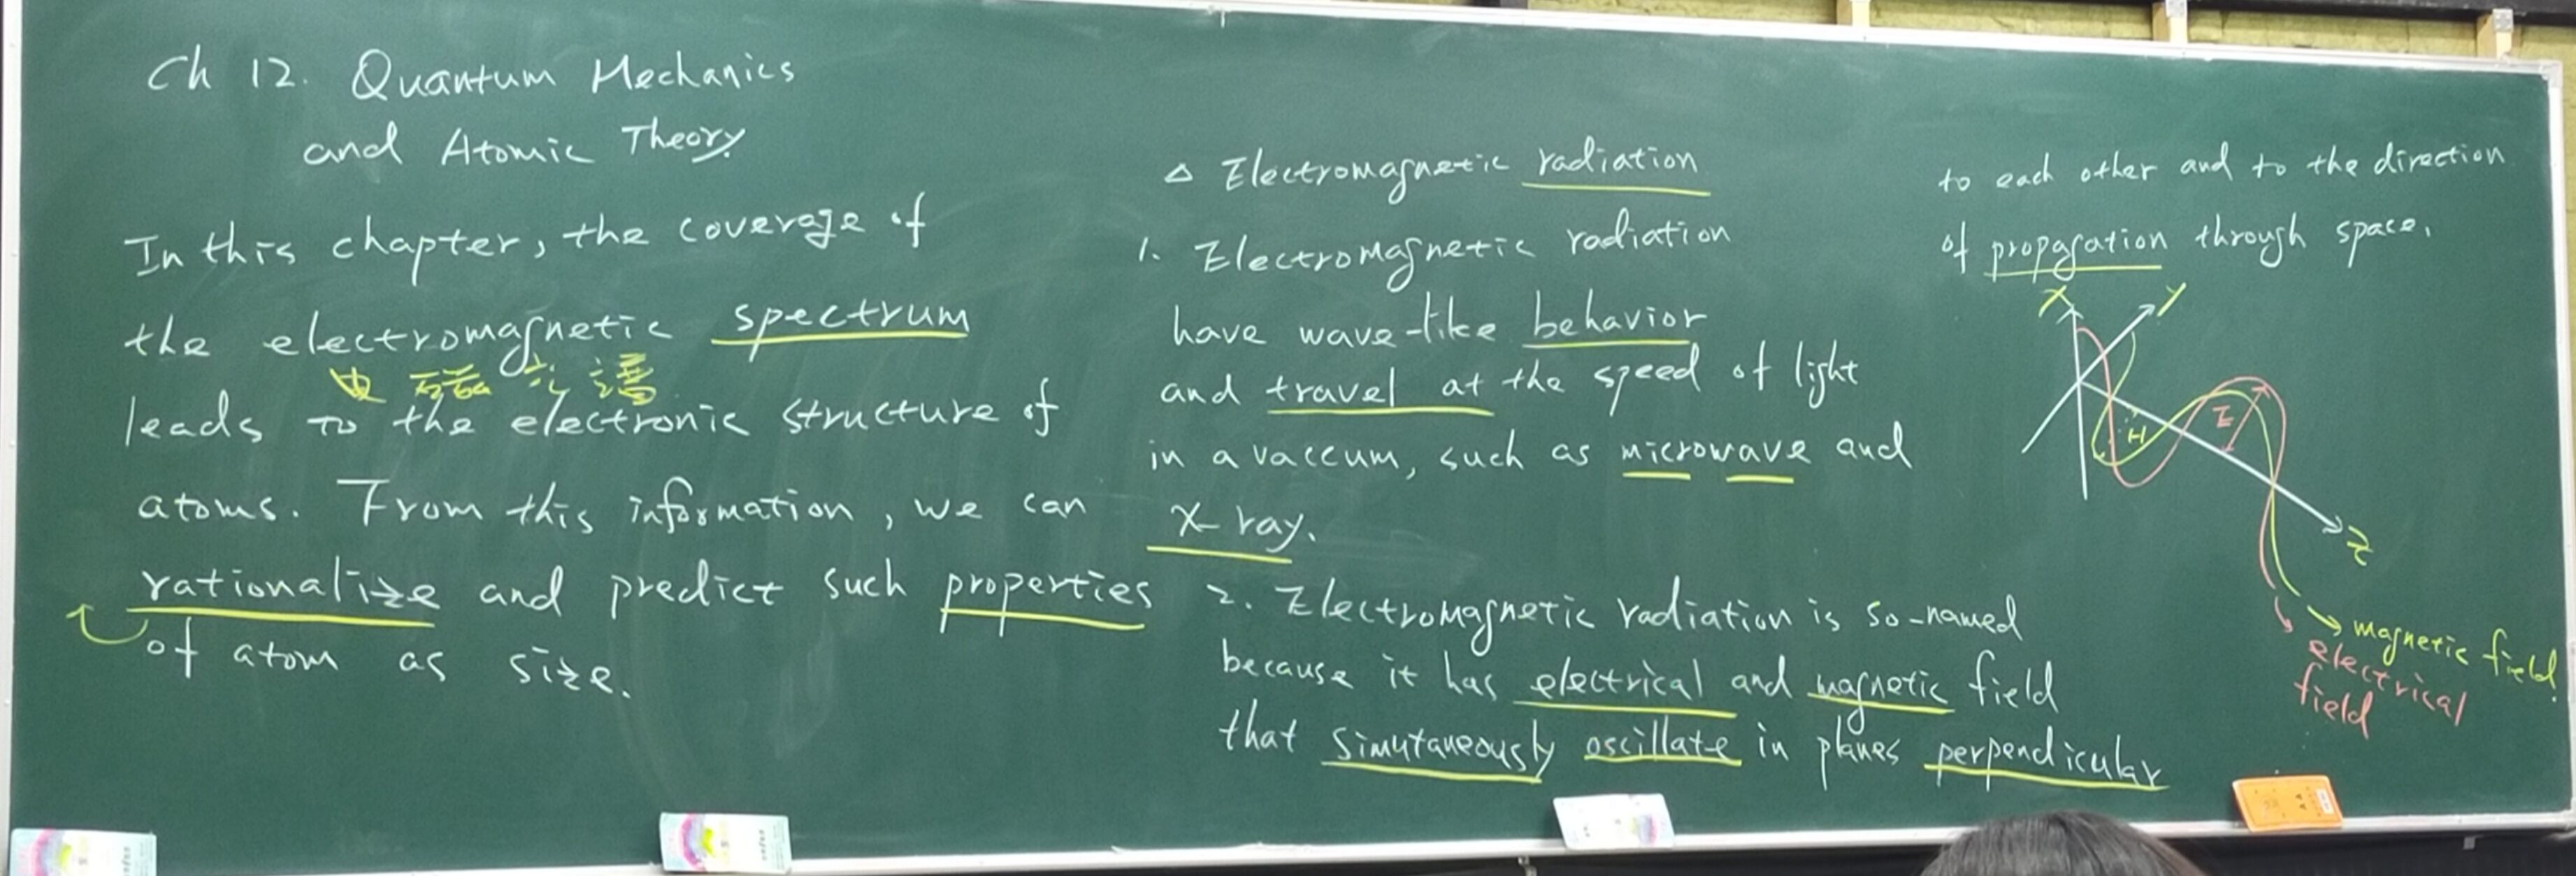 Ch 12. Quantum Mechanics
and Atomic Theory.
In this chapter, the coverage of
the electromagnetic spectrum
電磁光譜
leads to the electronic structure of
atoms. From this information, we can
rationalize and predict such properties
of atom as size.
△ Electromagnetic radiation
1. Electromagnetic radiation
have wave-like behavior
and travel at the speed of light
in a vaccum, such as microwave and
X-ray.
2. Electromagnetic radiation is so-named
because it has electrical and magnetic field
that simutaneously oscillate in planes perpendicular
to each other and to the direction
of propagation through space.
X
Y
E
H
Z
magnetic field.
electrical
field